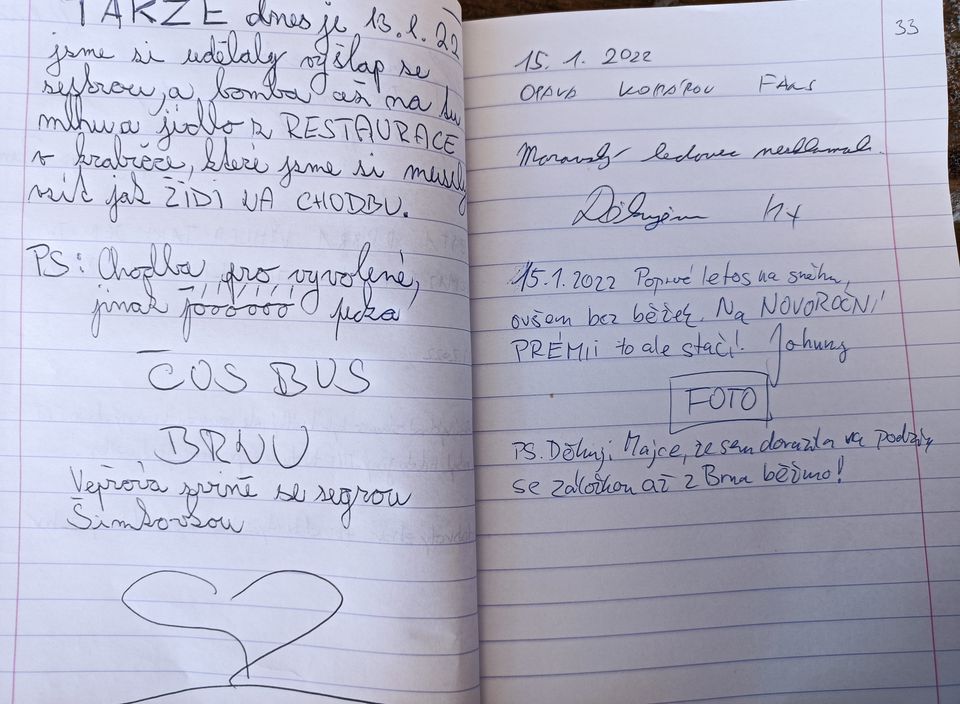 TAKŽE dnes je 13.1.22
jsme si udělaly výšlap se
segrou, a bomba až na tu
mlhu a jídlo z RESTAURACE
v krabičce, které jsme si musely
vzít jak ŽIDI NA CHODBU.
PS: Chodba pro vyvolené,
jinak jóóóóóó
ČUS BUS
BRNU
Vepřová se segrou
33
15. 1. 2022
OPAVA KOMÁROV FANS
Moravský ledovec nezklamal.
Děkujeme
15.1.2022 Poprvé letos na sněhu,
ovšem bez běžek. Na NOVOROČNÍ
PRÉMII to ale stačí!
FOTO
PS. Děkuji Majce, že sem dorazila na podzim
se záložkou až z Brna běžmo!